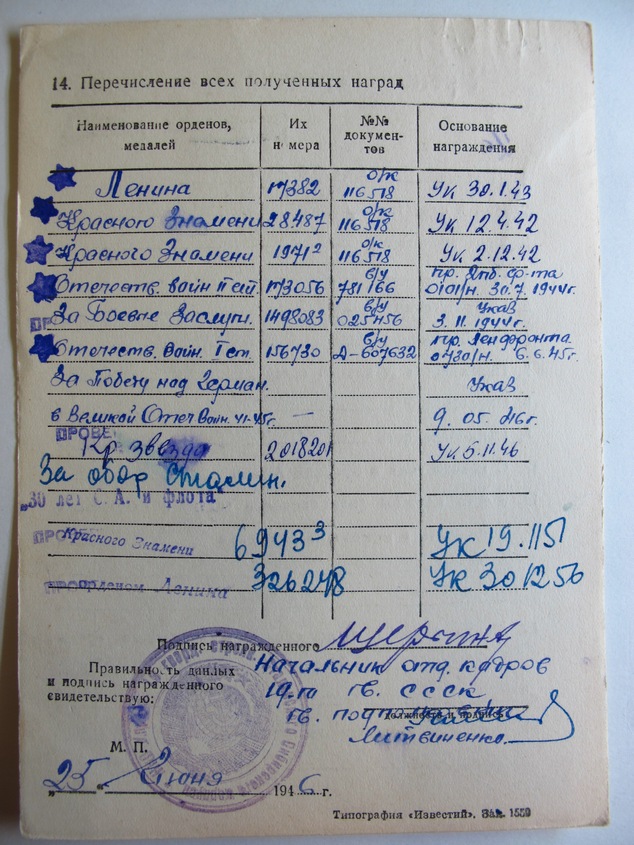 14. Перечисление всех полученных наград
Наименование орденов, медалей Их номера №№ документов Основание награждения
Ленина 17382 о/к 116518 Ук 30.1.43
Красного Знамени 28487 о/к 116518 Ук 12.4.42
Красного Знамени 1971² о/к 116518 Ук 2.12.42
Отечеств. войн II ст. 173056 в/у 781166 пр. фр-та 0101/н. 30.7.1944г.
За Боевые Заслуги. 1498083 в/у 025456 Указ 3.11.1944г.
Отечеств. Войн. I ст. 156730 в/у А-607632 пр. Ленфронта 0730/н. 6.6.45г.
За Победу над Герман. Указ
в Великой Отеч Войн. 41-45г. — 9.05.46г.
ПРОВЕ
Кр Звезда 2018201 Ук 6.11.46
За обор Сталин.
„30 лет С. А. и флота“
Красного Знамени 69433 Ук 19.115
орденом Ленина 326248 Ук 301256
Подпись награжденного
Правильность данных и подпись награжденного свидетельствую:
Начальник отд. кадров
19-го гв. СССК
гв. подпо
должность и подпись
Литвиненко
М. П.
„25“ Июня 1946 г.
Типография «Известий». Зак. 1559